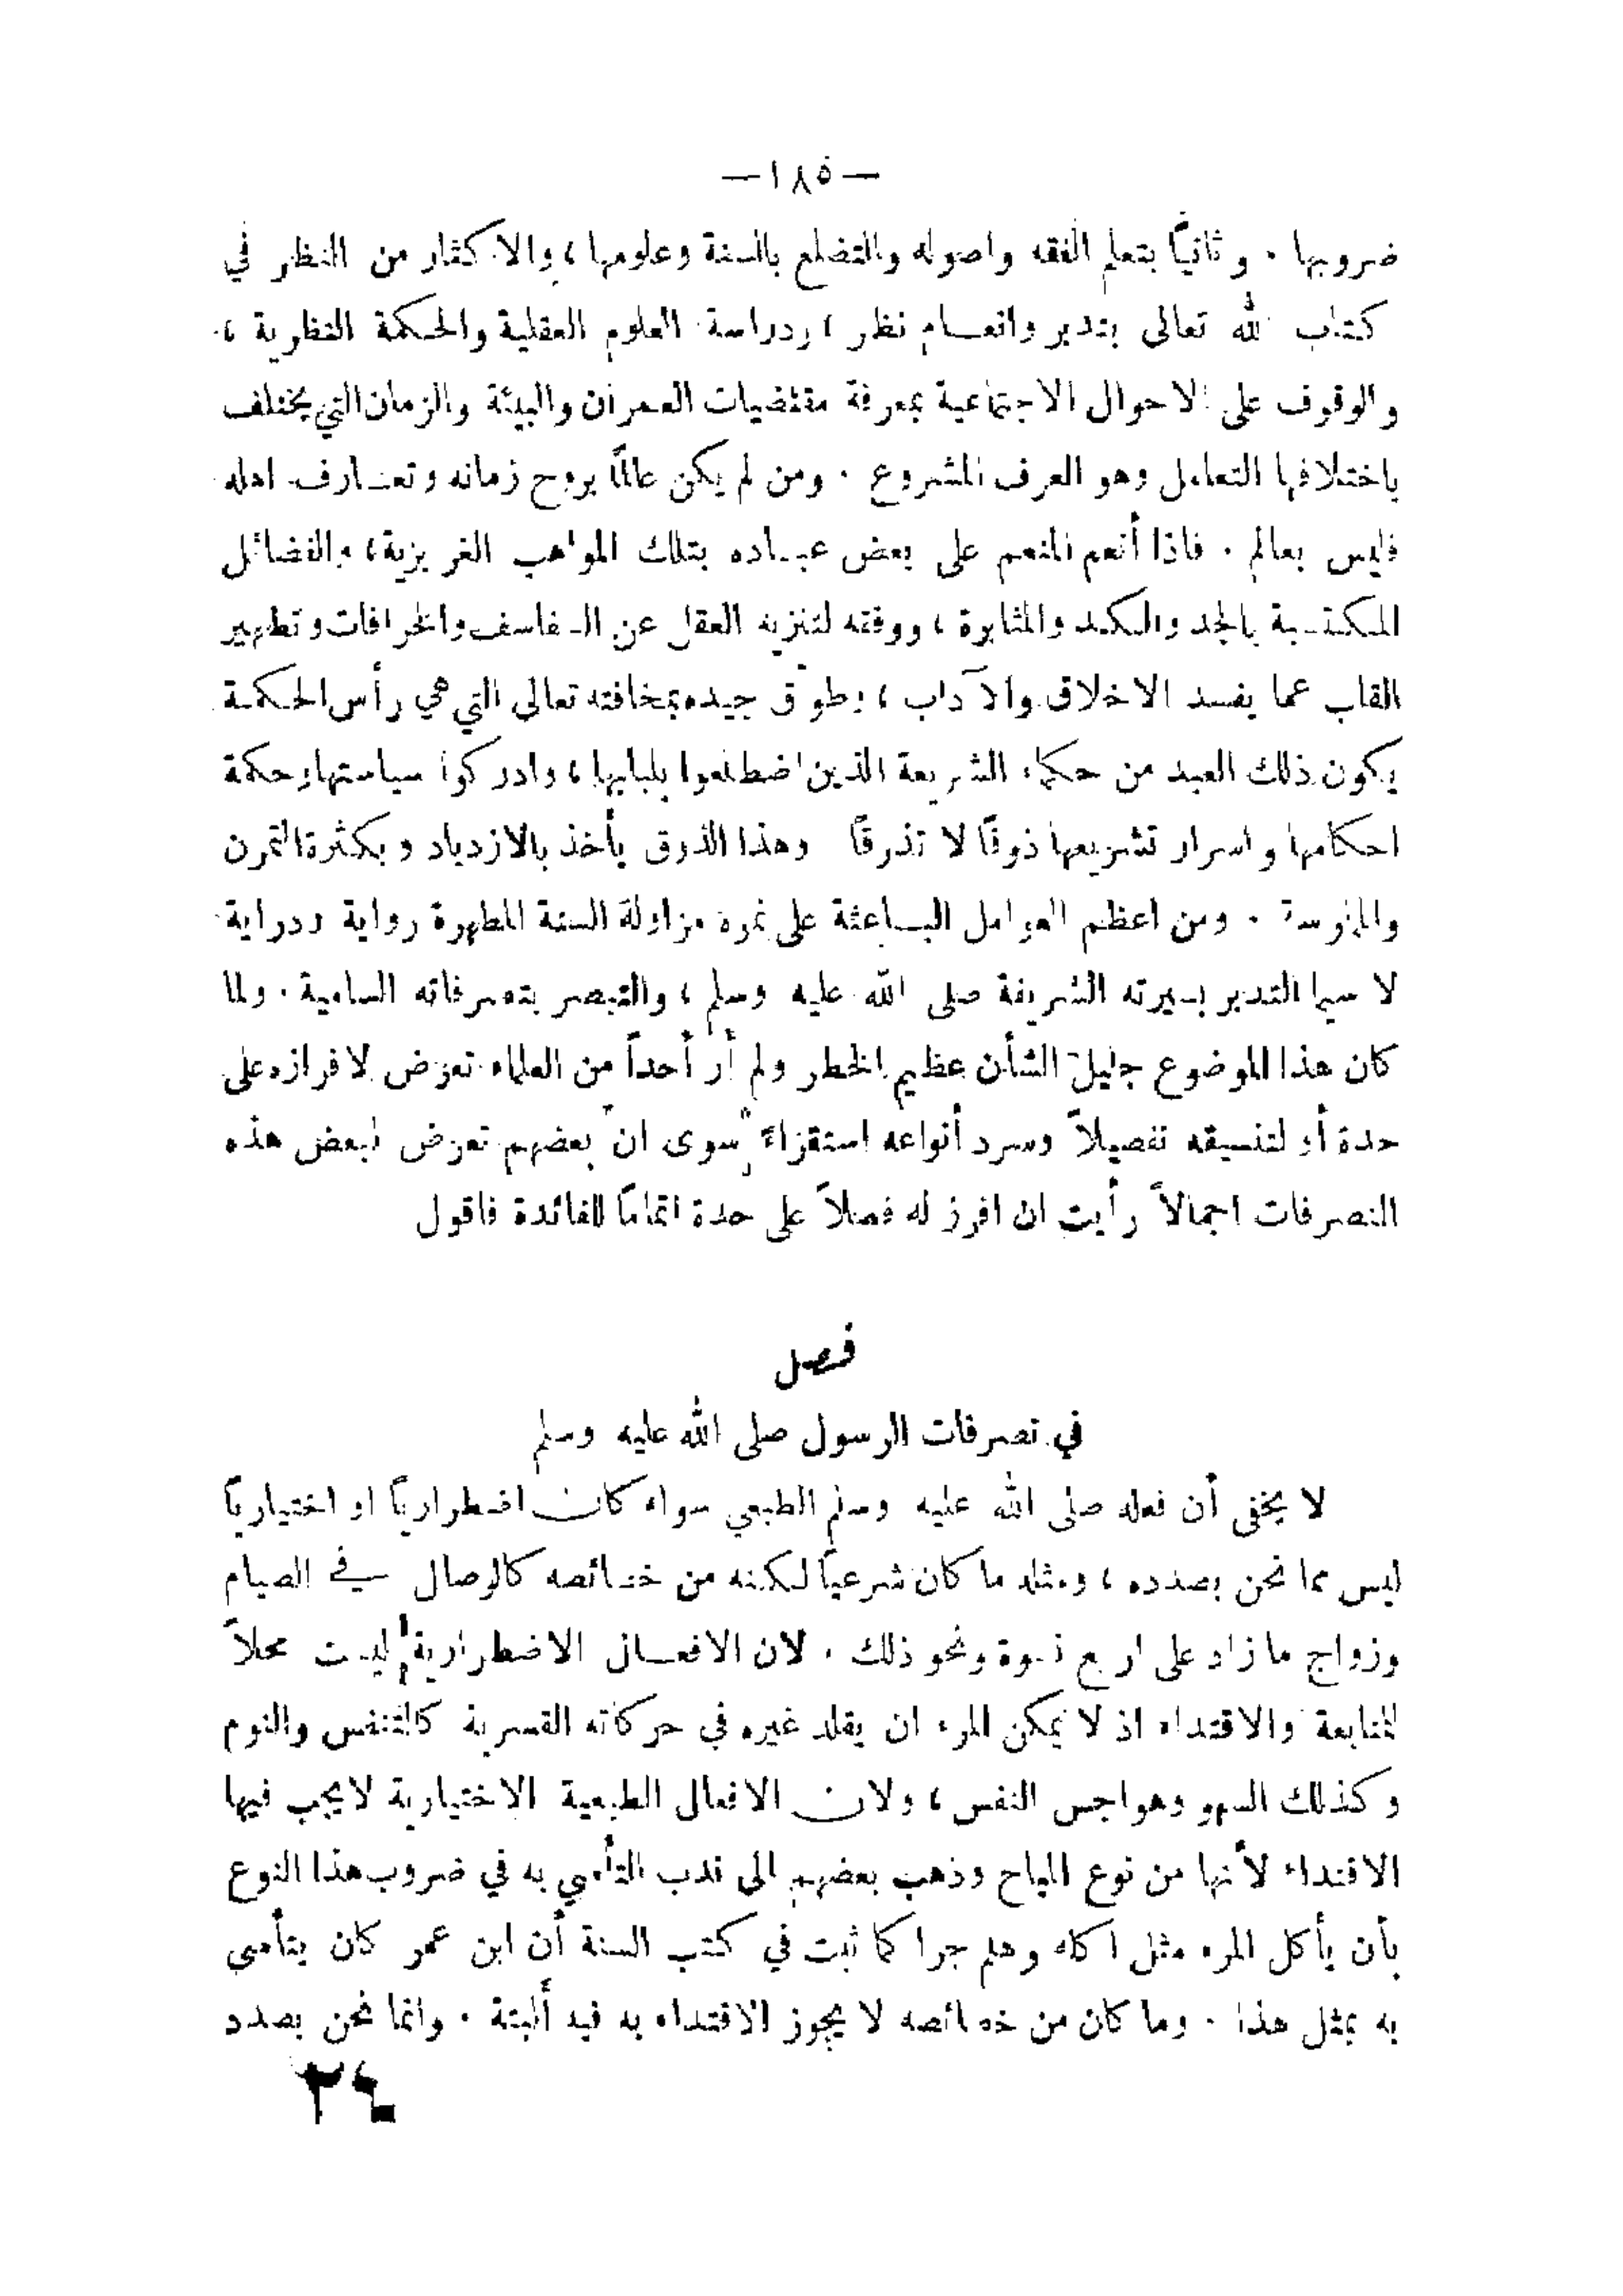 — ١٨٥ —
ضروبها . وثانياً بتعلم الفقه واصوله والتضلع بالسنة وعلومها ، والاكثار من النظر في
كتاب الله تعالى بتدبر وانعام نظر ، ودراسة العلوم العقلية والحكمة النظرية ،
والوقوف على الاحوال الاجتماعية بمعرفة مقتضيات العمران والبيئة والزمان التي يختلف
باختلافها التعامل وهو العرف المشروع . ومن لم يكن عالماً بروح زمانه وتعارف اهله
فليس بعالم . فاذا أنعم المنعم على بعض عباده بتلك المواهب الغريزية ، والفضائل
المكتسبة بالجد والكد والمثابرة ، ووفقه لتنزيه العقل عن السفاسف والخرافات وتطهير
القلب عما يفسد الاخلاق والآداب ، وطوّق جيده بمخافته تعالى التي هي رأس الحكمة
يكون ذلك العبد من حكماء الشريعة الذين اضطلعوا بلبابها ، وادركوا سياستها وحكمة
احكامها واسرار تشريعها ذوقاً لا تذوقاً وهذا الذوق يأخذ بالازدياد وبكثرة التمرن
والممارسة . ومن اعظم العوامل الباعثة على نموه مزاولة السنة المطهرة رواية ودراية
لا سيما التدبر بسيرته الشريفة صلى الله عليه وسلم ، والتبصر بتصرفاته السامية . ولما
كان هذا الموضوع جليل الشأن عظيم الخطر ولم أر أحداً من العلماء تعرض لافرازه على
حدة أو لتنسيقه تفصيلاً وسرد أنواعه استقراءً سوى ان بعضهم تعرض لبعض هذه
التصرفات اجمالاً رأيت ان افرز له فصلاً على حدة اتماماً للفائدة فاقول
فصل
في تصرفات الرسول صلى الله عليه وسلم
لا يخفى أن فعله صلى الله عليه وسلم الطبعي سواء كان اضطرارياً او اختيارياً
ليس مما نحن بصدده ، ومثله ما كان شرعياً لكنه من خصائصه كالوصال في الصيام
وزواج ما زاد على اربع نسوة ونحو ذلك . لان الافعال الاضطرارية ليست محلاً
للمتابعة والاقتداء اذ لا يمكن المرء ان يقلد غيره في حركاته القسرية كالتنفس والنوم
وكذلك السهو وهواجس النفس ، ولان الافعال الطبعية الاختيارية لا يجب فيها
الاقتداء لأنها من نوع المباح وذهب بعضهم الى ندب التأسي به في ضروب هذا النوع
بأن يأكل المرء مثل اكله وهلم جرا كما ثبت في كتب السنة أن ابن عمر كان يتأسى
به بمثل هذا . وما كان من خصائصه لا يجوز الاقتداء به فيه ألبتة . وانما نحن بصدد